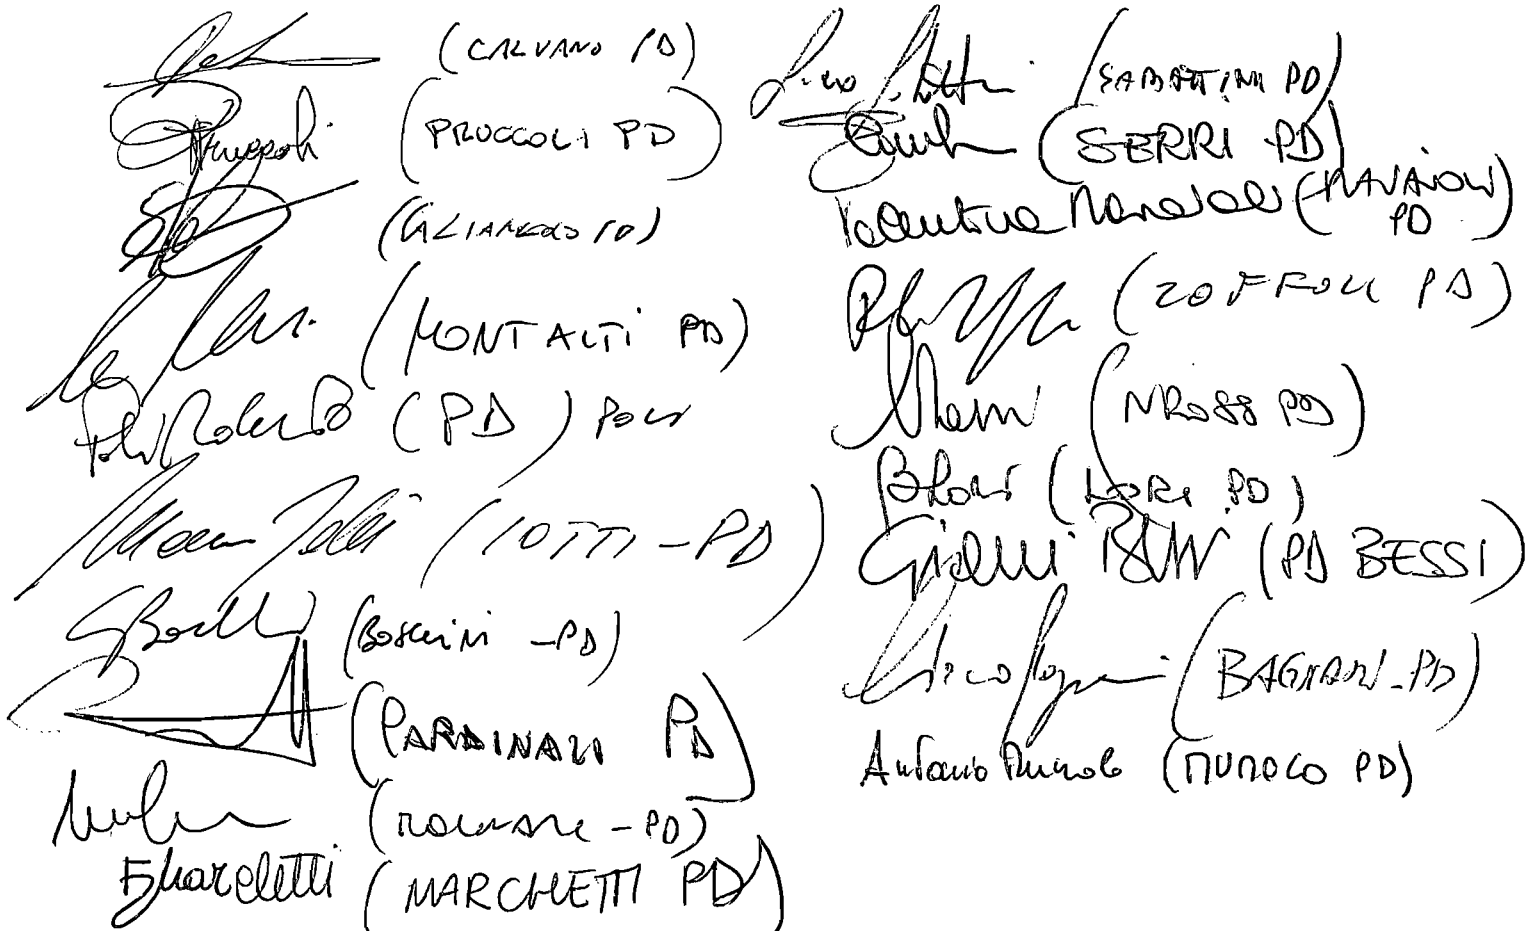 (CALVANO PD)
Pruccoli (PRUCCOLI PD)
(CALIANDRO PD)
(MONTALTI PD)
Poli Roberto (PD) POLI
Massimo Iotti (IOTTI - PD)
GBoschini (BOSCHINI - PD)
(CARDINALI PD)
(MOLINARI - PD)
FMarchetti (MARCHETTI PD)
Luca Sabattini (SABATTINI PD)
(SERRI PD)
Valentina Ravaioli (RAVAIOLI PD)
(ZOFFOLI PD)
NRossi (NROSSI PD)
BLori (LORI PD)
Gianni Bessi (PD BESSI)
Mirco Bagnari (BAGNARI - PD)
Antonio Mumolo (MUMOLO PD)